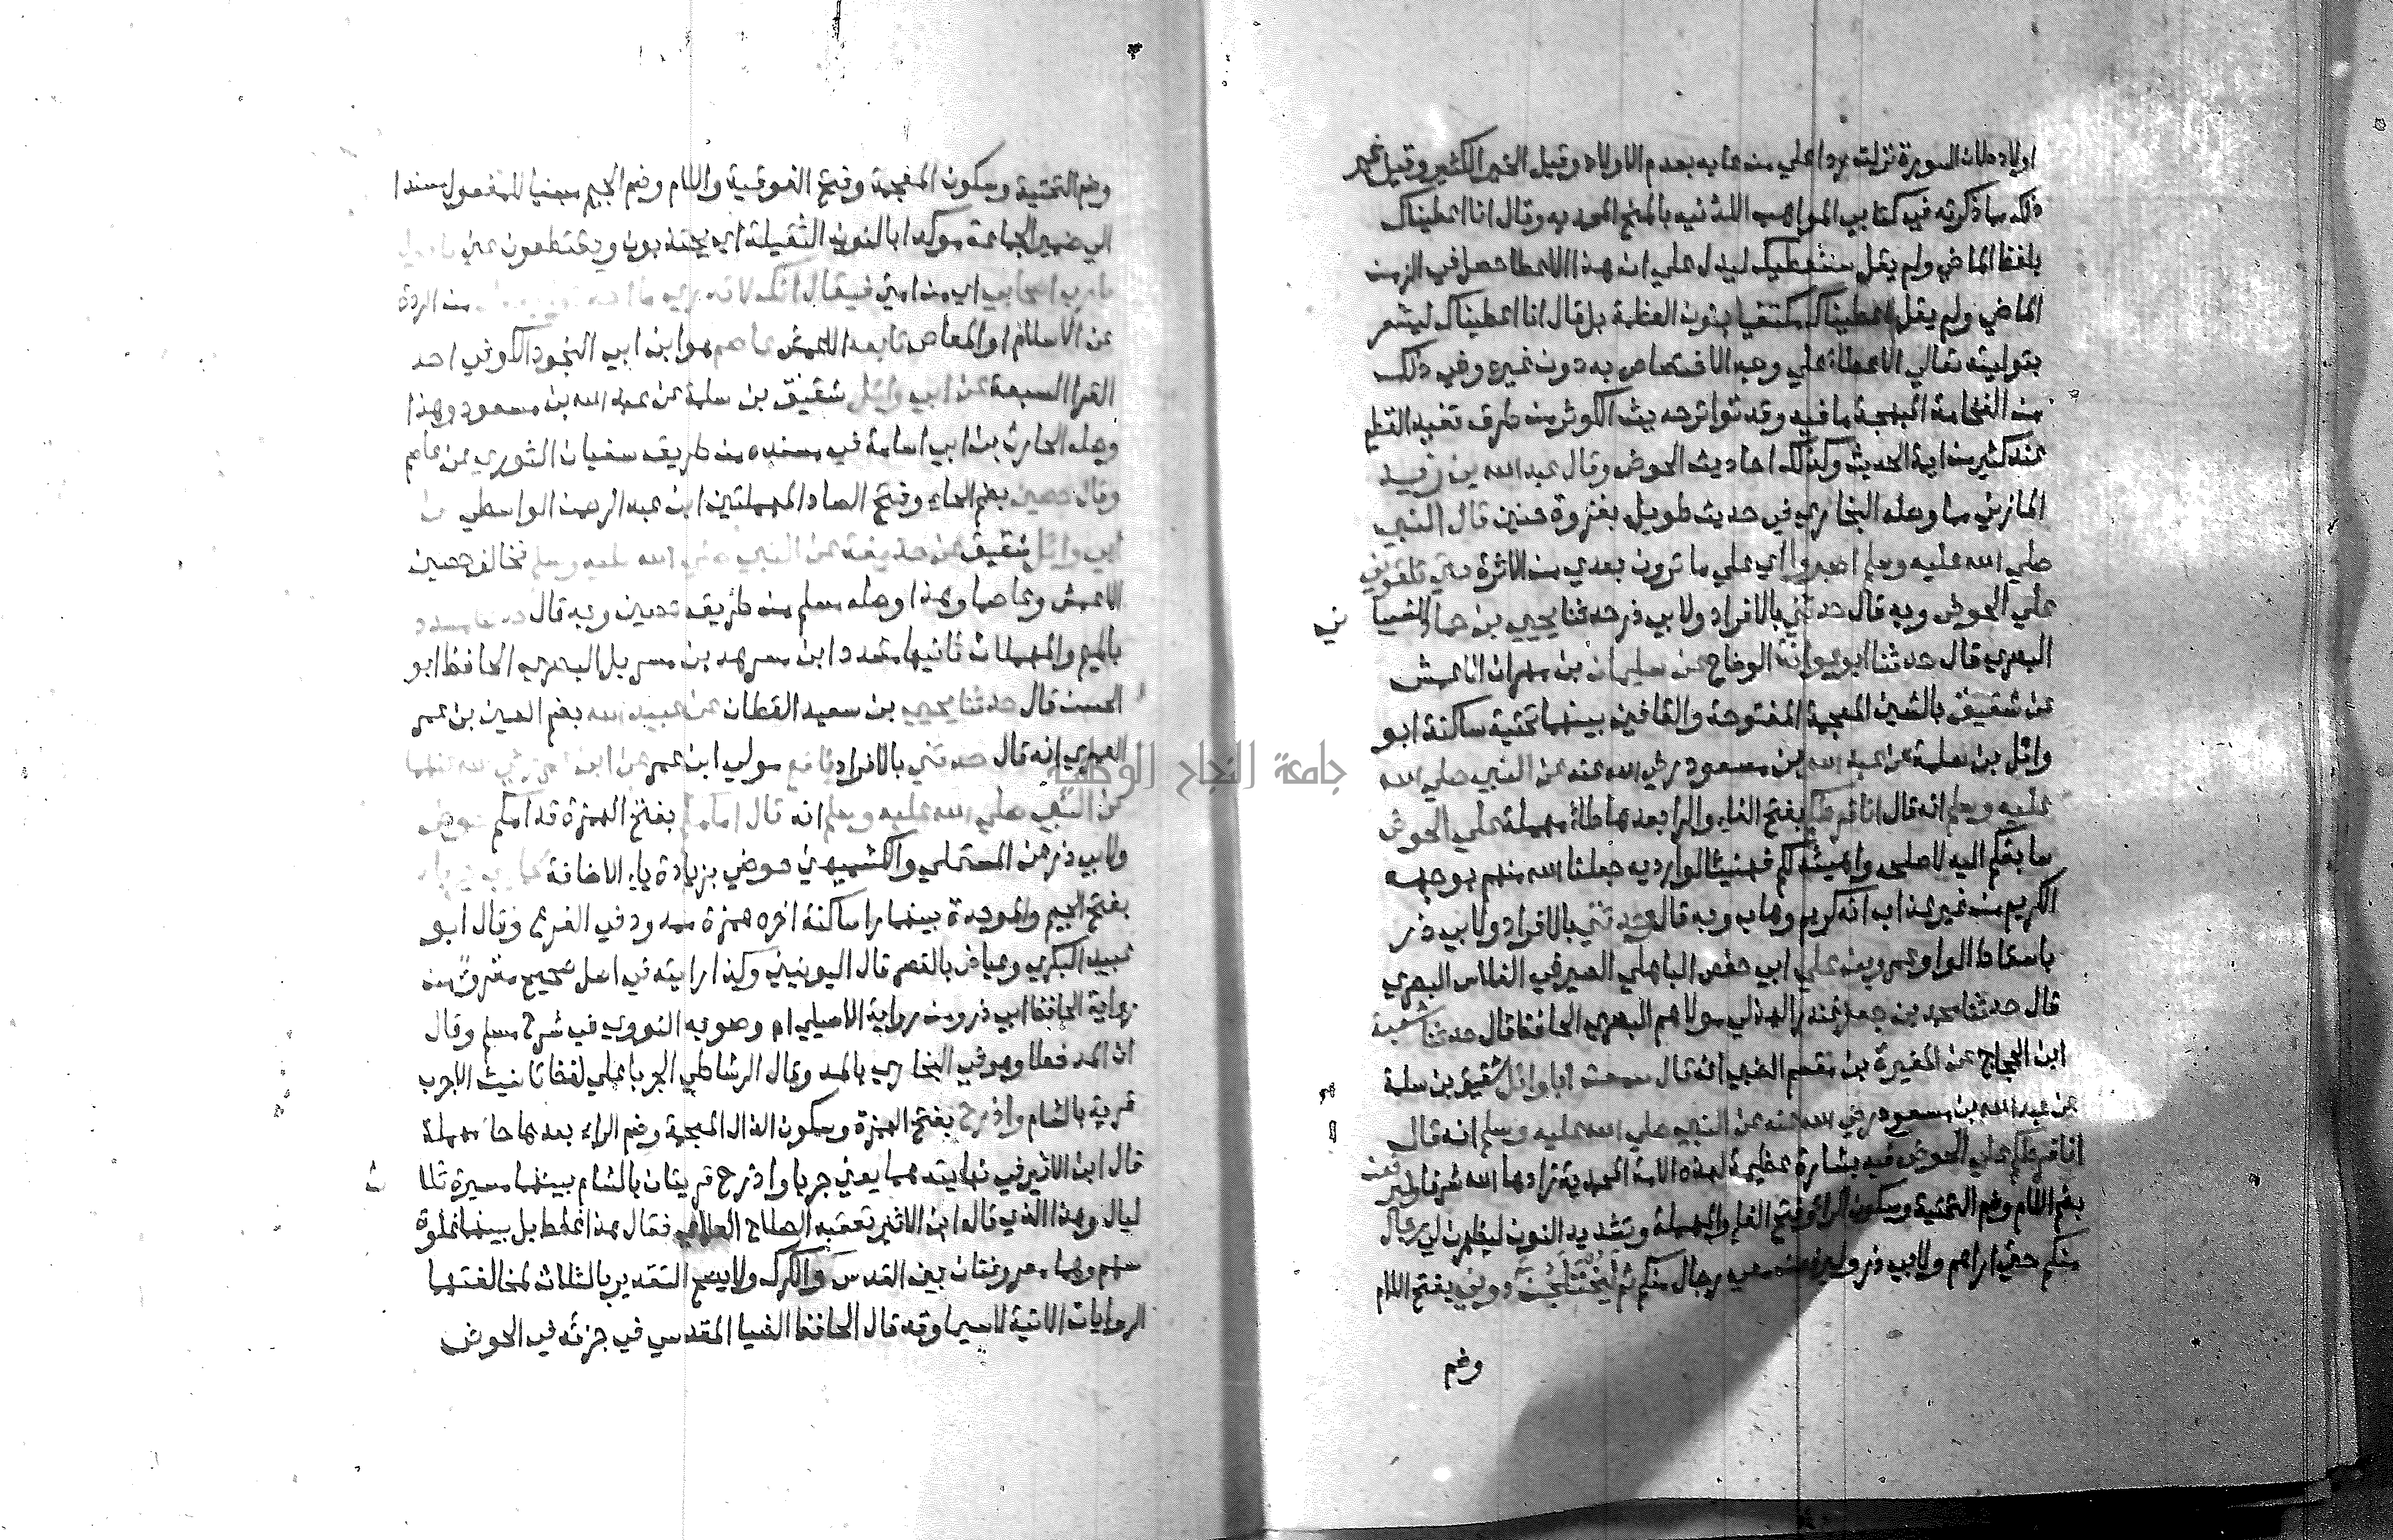 اولاده لان السورة نزلت ردا علي من عابه بعدم الاولاد وقيل الخير الكثير وقيل غير
ذلك مما ذكرته في كتابي المواهب اللدنيه بالمنح المحمديه وقال انا اعطيناك
بلفظ الماضي ولم يقل سنعطيك ليدل علي ان هذا الاعطا حصل في الزمن
الماضي ولم يقل اعطيناك مكتفيا بنون العظمة بل قال انا اعطيناك ليشعر
بتوليته تعالي الاعطاء علي وجه الاختصاص به دون غيره وفي ذلك
من الفخامة المبهجة ما فيه وقد تواتر حديث الكوثر من طرق تفيد القطع
عند كثير من ايمة الحديث وكذلك احاديث الحوض وقال عبد الله بن زيد
المازني مما وصله البخاري في حديث طويل بغزوة حنين قال النبي
صلي الله عليه وسلم اصبروا اي علي ما ترون بعدي من الاثرة حتي تلقوني
علي الحوض وبه قال حدثني بالافراد ولابي ذر حدثنا يحيي بن حماد الشيبا ني
البصري قال حدثنا ابو عوانة الوضاح عن سليمان بن مهران الاعمش
عن شقيق بالشين المعجمة المفتوحة والقافين بينهما تحتية ساكنة ابو
وائل بن سلمة عن عبد الله بن مسعود رضي الله عنه عن النبي صلي الله
عليه وسلم انه قال انا فرطكم بفتح الفاء والرا بعدها طاء مهملة علي الحوض
سابقكم اليه لاصلحه واهيئه لكم فهنيئا لوارديه جعلنا الله منهم بوجهه
الكريم من غير عذاب انه كريم وهاب وبه قال وحدثني بالافراد ولابي ذر
باسقاط الواو عمرو بن علي ابي حفص الباهلي الصيرفي الفلاس البصري
قال حدثنا محمد بن جعفر غندر الهذلي مولاهم البصري الحافظ قال حدثنا شعبة
ابن الحجاج عن المغيرة بن مقسم الضبي انه قال سمعت ابا وائل شقيق بن سلمة
عن عبد الله بن مسعود رضي الله عنه عن النبي صلي الله عليه وسلم انه قال
انا فرطكم علي الحوض فيه بشارة عظيمة لهذه الامة المحمدية زادها الله شرفا وليرفعن
بضم اللام وضم التحتية وسكون الراء وفتح الفاء والمهملة وتشديد النون ليظهرن لي رجال
منكم حتي اراهم ولابي ذر وليرفعن معي رجال منكم ثم ليختلجن دوني بفتح اللام
وضم
وضم التحتية وسكون المعجمة وفتح الفوقية واللام وضم الجيم مبنيا للمفعول مسندا
الي ضمير الجماعة موكدا بالنون الثقيلة اي يجتذبون ويقتطعون عني
يارب اصحابي اي من امتي فيقال انك لا تدري ما من الردة
عن الاسلام او المعاصي تابعه الاعمش عاصم هو ابن ابي النجود الكوفي احد
القرا السبعة عن ابي وائل شقيق بن سلمة عن عبد الله بن مسعود وهذا
وصله الحارث بن ابي اسامة في مسنده من طريق سفيان الثوري عن عاصم
وقال حصين بضم الحاء وفتح الصاد المهملتين ابن عبد الرحمن الواسطي
ابي وائل شقيق عن حذيفة عن النبي صلي الله عليه وسلم فخالف حصين
الاعمش وعاصما وهذا وصله مسلم من طريق حصين وبه قال مسدد
بالميم والمهملات ثانيها مشدد ابن مسرهد بن مسربل البصري الحافظ ابو
الحسن قال حدثنا يحيي بن سعيد القطان عن عبيد الله بضم العين بن عمر
العمري انه قال حدثني بالافراد نافع مولي ابن عمر عن ابن عمر رضي الله عنهما
عن النبي صلي الله عليه وسلم انه قال امامكم بفتح الهمزة قدامكم حوض
ولابي ذر عن المستملي والكشميهني حوضي بزيادة ياء الاضافة
بفتح الجيم والموحدة بينهما را ساكنة اخره همزة ممدود في الفرع وقال ابو
عبيد البكري وعياض بالقصر قال اليونيني وكذا رايته في اصل صحيح مقروء من
رواية الحافظ ابي ذر ومن رواية الاصيلي ام وصوبه النووي في شرح مسلم وقال
ان المد خطا وهو في البخاري بالمد وقال الرشاطي الجربا علي لفظ تانيث الاجرب
قرية بالشام واذرح بفتح الهمزة وسكون الذال المعجمة وضم الراء بعدها حا مهملة
قال ابن الاثير في نهايته هما يعني جربا واذرح قريتان بالشام بينهما مسيرة ثلا ث
ليال وهذا الذي قاله ابن الاثير تعقبه الصلاح العلاي فقال هذا غلط بل بينهما غلوة
سهم وهما معروفتان بين القدس والكرك ولا يصح التقدير بالثلاث لمخالفتها
الروايات الاتية لاسيما وقد قال الحافظ الضيا المقدسي في جزئه في الحوض
جامعة النجاح الوطنية